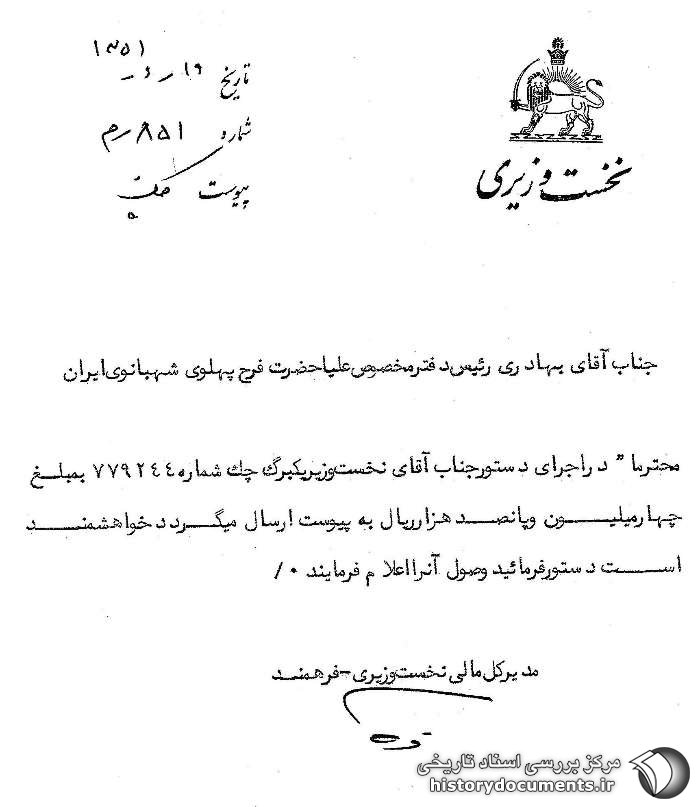 ۱۳۵۱
تاریخ
شماره ۸۵۱رم
پیوست
نخست وزیری
جناب آقای بهادری رئیس دفتر مخصوص علیاحضرت فرح پهلوی شهبانوی ایران
محترما" در اجرای دستور جناب آقای نخست وزیر یکبرگ چك شماره ۷۷۹۲٤٤ بمبلغ
چهار میلیون و پانصد هزار ریال به پیوست ارسال میگردد خواهشمند
است دستور فرمائید وصول آنرا اعلام فرمایند ۰/
مدیر کل مالی نخست وزیری - فرهمند
مرکز بررسی اسناد تاریخی
historydocuments.ir